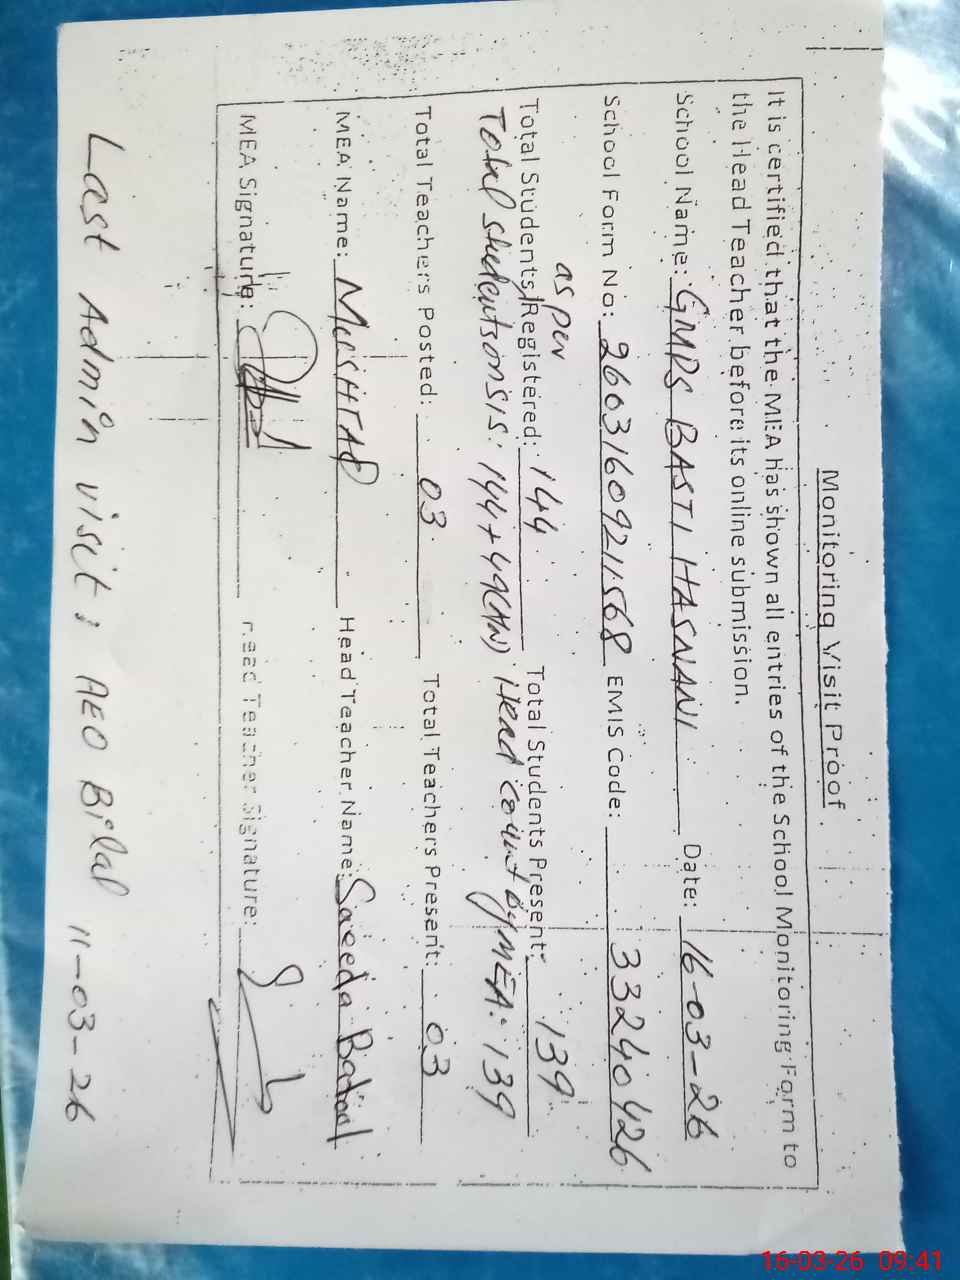 Monitoring Visit Proof
It is certified that the MEA has shown all entries of the School Monitoring Form to
the Head Teacher before its online submission.
School Name: GMPS BASTI HASNANI Date: 16-03-26
School Form No: 26031609211568 EMIS Code: 33240426
as per
Total Students Registered: 144 Total Students Present: 139
Total students on SIS: 144+49(AN) Head count by MEA: 139
Total Teachers Posted: 03 Total Teachers Present: 03
MEA Name: MUSHTAQ Head Teacher Name: Saeeda Batool
MEA Signature: Head Teacher Signature:
Last Admin visit: AEO Bilal 11-03-26
16-03-26 09:41